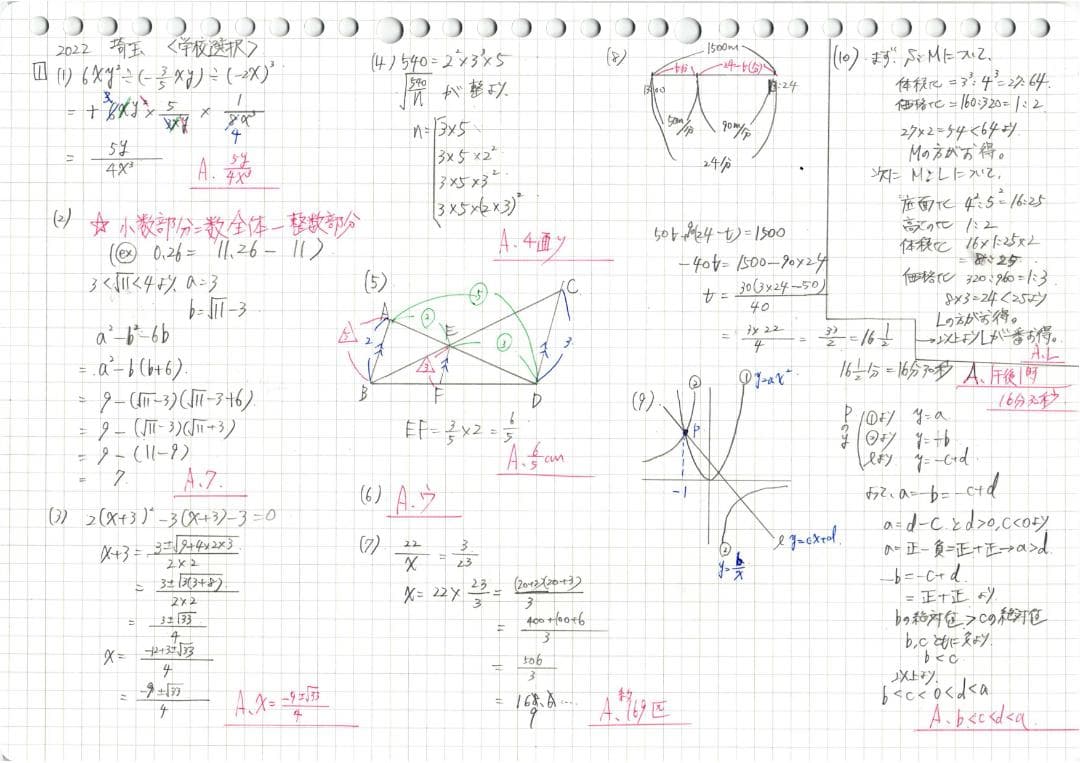 2022 埼玉 <学校選択>
1
(1) 6xy²÷(-3/5xy)÷(-2x)³
= + 6xy² × 5/3xy × 1/8x³
3
4
= 5y/4x³
A. 5y/4x³
(2) ☆ 小数部分=数全体-整数部分
(ex) 0.26 = 11.26 - 11)
3<√11<4より a=3
b=√11-3
a²-b²-6b
= a²-b(b+6)
= 9-(√11-3)(√11-3+6)
= 9-(√11-3)(√11+3)
= 9-(11-9)
= 7
A. 7
(3) 2(x+3)²-3(x+3)-3=0
x+3 = 3±√9+4×2×3 / 2×2
= 3±√3(3+8) / 2×2
= 3±√33 / 4
x = -12+3±√33 / 4
= -9±√33 / 4
A. x = -9±√33 / 4
(4) 540=2²×3³×5
√540/n が整より
n= 3×5
3×5×2²
3×5×3²
3×5×(2×3)²
A. 4通り
(5)
A
B
C
D
E
F
5
2
3
2
3
5
3
EF = 3/5×2 = 6/5
A. 6/5 cm
(6) A. ウ
(7) 22/x = 3/23
x = 22× 23/3 = (20+2)(20+3)/3
= 400+100+6 / 3
= 506/3
= 168.6…
9
A. 約169匹
(8)
1500m
t分
24-t(分)
13:00
:24
50m/分
90m/分
24分
50t+90(24-t)=1500
-40t=1500-90×24
t = 30(3×24-50) / 40
= 3×22/4 = 33/2 = 16 1/2
16 1/2分=16分30秒
A. 午後1時
16分30秒
(9)
② ① y=ax²
P
-1
ℓ y=cx+d
②
y=b/x
Pのy
①より y=a
②より y=-b
ℓより y=-c+d
よって、a=-b=-c+d
a=d-c とd>0,c<0より
a=正-負=正+正→a>d
-b=-c+d
=正+正 より
bの絶対値>cの絶対値
b,cともに負より
b<c
以上より
b<c<0<d<a
A. b<c<d<a
(10) まず、SとMについて、
体積比=3³:4³=27:64
価格比=160:320=1:2
27×2=54<64より
Mの方がお得。
次に MとLについて、
底面比 4²:5²=16:25
高さの比 1:2
体積比 16×1:25×2
= 8:25
価格比 320:960=1:3
8×3=24<25より
Lの方がお得。
→以上よりLが一番お得。
A. L